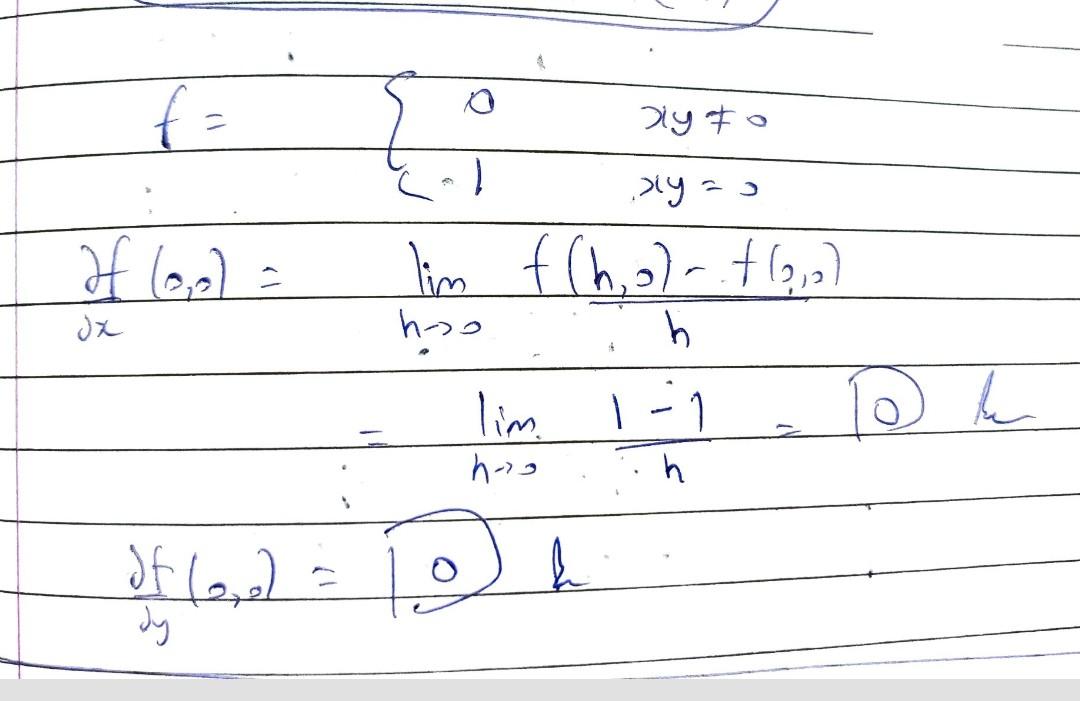 f = { 0 xy ≠ 0
1 xy = 0
∂f/∂x (0,0) = lim h→0 f(h,0) - f(0,0) / h
= lim h→0 1 - 1 / h = 0
∂f/∂y (0,0) = 0